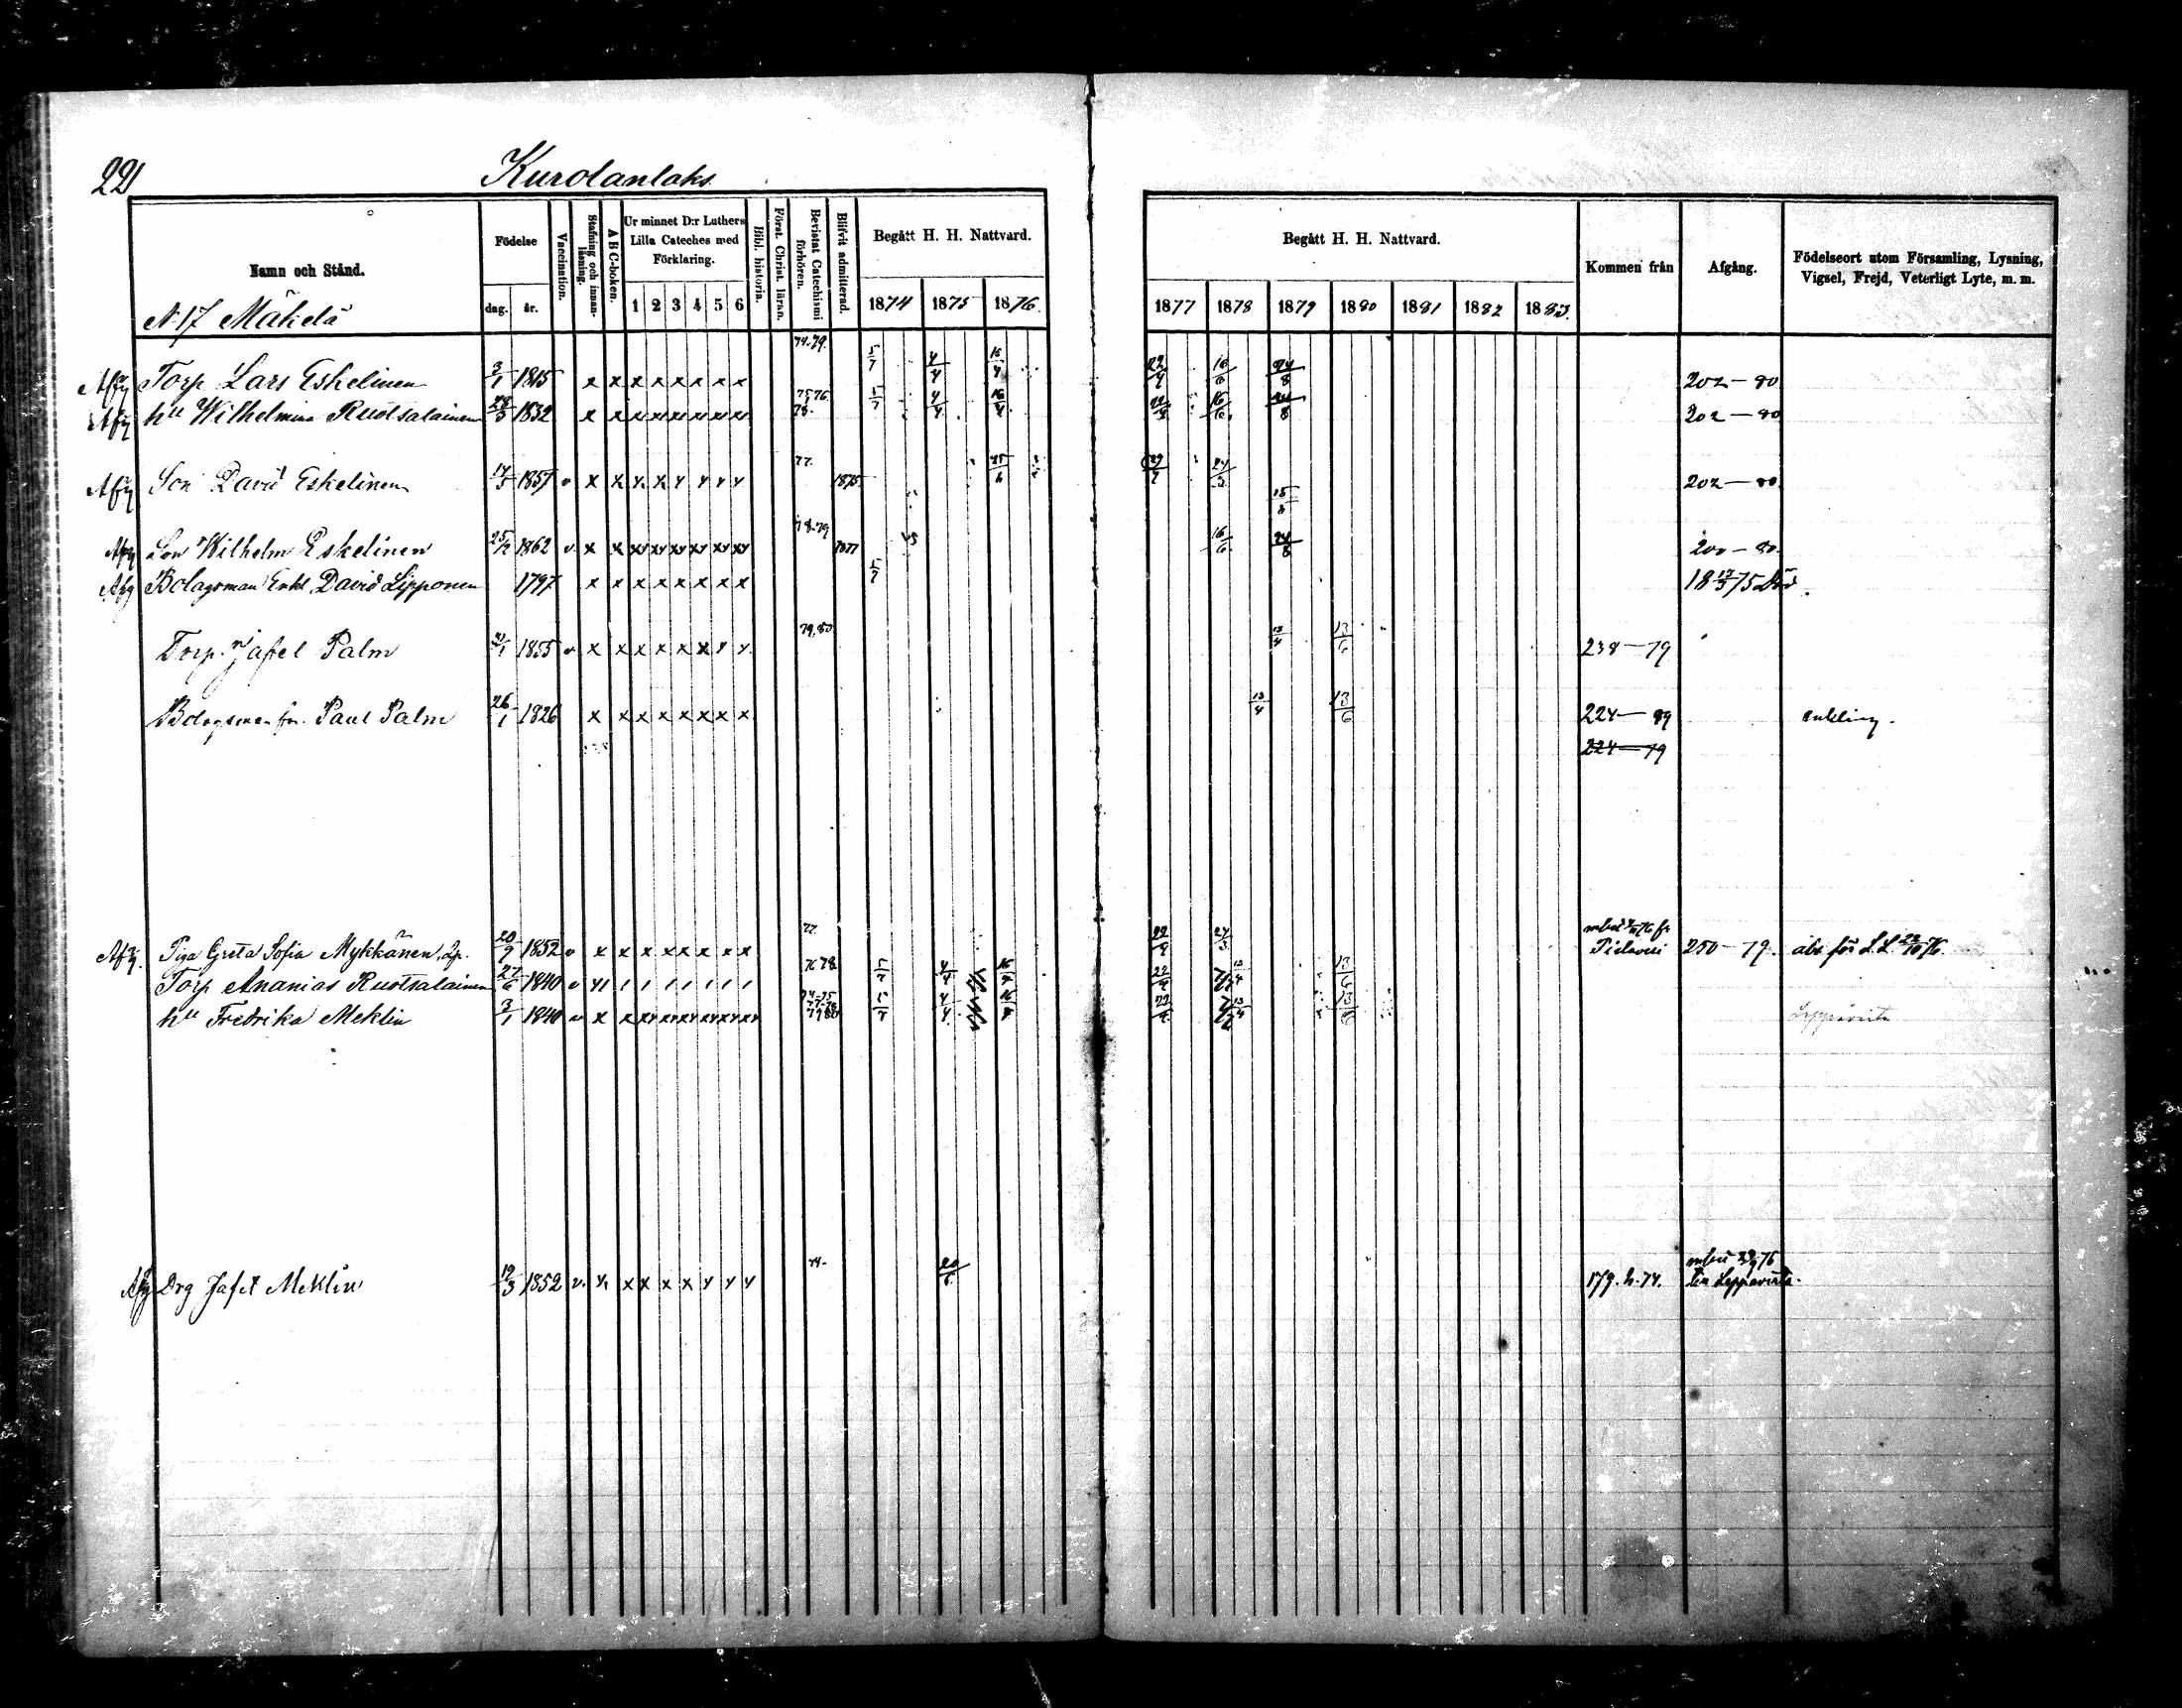 221
Kurolanlaks
Namn och Stånd.
Födelse
dag. år.
Vaccination.
Stafning och innan-läsning.
A B C-boken.
Ur minnet D:r Luthers Lilla Cateches med Förklaring.
1 2 3 4 5 6
Bibl. historia.
Först. Christ. läran.
Bevistat Catechismi förhören.
Blifvit admitterad.
Begått H. H. Nattvard.
1874 1875 1876.
Begått H. H. Nattvard.
1877 1878 1879 1880 1881 1882 1883.
Kommen från
Afgång.
Födelseort utom Församling, Lysning, Vigsel, Frejd, Veterligt Lyte, m. m.
N. 17 Mäkelä
Afg Torp Lars Eskelinen 3/1 1815 x x x x x x x x 74.79. 5/7 4/4 16/4 22/4 16/6 24/8 202—80
Afg hu Wilhelmina Ruotsalainen 28/3 1832 75 76 78. 5/7 4/4 16/4 22/4 16/6 24/8 202—80
Afg Son David Eskelinen 14/3 1857 v 77. 1875. 25/6 24/3 15/8 202—80
Afg Son Wilhelm Eskelinen 25/2 1862 v 78-79 1877 16/6 24/8 200—80.
Afg Bolagsman Enkl David Lipponen 1797 x x x x x x x x 5/7 18 17/3 75 Död.
Torp. Jafet Palm 21/1 1855 v 79,80 13/4 13/6 238—79
Bolagsman Paul Palm 26/1 1826 x x x x x x x x 13/4 13/6 224—89 enkling.
224—79
Afg. Piga Greta Sofia Mykkänen, 20/9 1852 v x x x x x x x x 77. 22/4 24/3 Pielavesi 250—79. abs för L L 22/10 76.
Torp Ananias Ruotsalainen 27/6 1840 v 76 78 5/7 4/4 16/4 22/4 13/4 13/6
hu Fredrika Meklin 3/1 1840 v 74-75 77-78 79 80 4/4 16/4 22/4 13/4 13/6 Leppävirta
Afg Drg Jafet Meklin 19/3 1852 v. 74. 20/6 179. h. 74. Leppävirta.